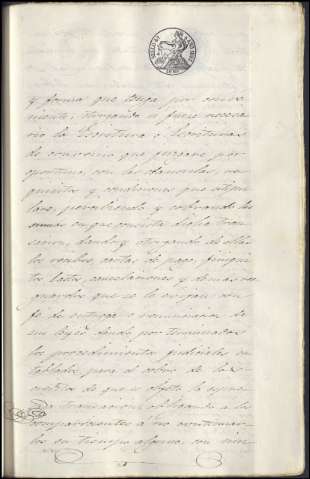 y forma que tenga por conve-
niente, otorgando en forma necesa-
rio la Escritura o Escrituras
de convenio que juzgare por
oportuno, con las clausulas, re-
quisitos y condiciones que estipu-
lare, percibiendo y cobrando las
sumas en que consista dicha tran-
saccion, dando y otorgando de ellas
los recibos, cartas de pago, finiqui-
tos, lastos, cancelaciones y demas res-
guardos que se le exijan con
fe de entrega o renunciacion de
sus leyes, dando por terminados
los procedimientos judiciales en-
tablados para el cobro de la
de que es objeto la
transaccion obligando a los
comparecientes a no continuar-
los en tiempo alguno, con nin-